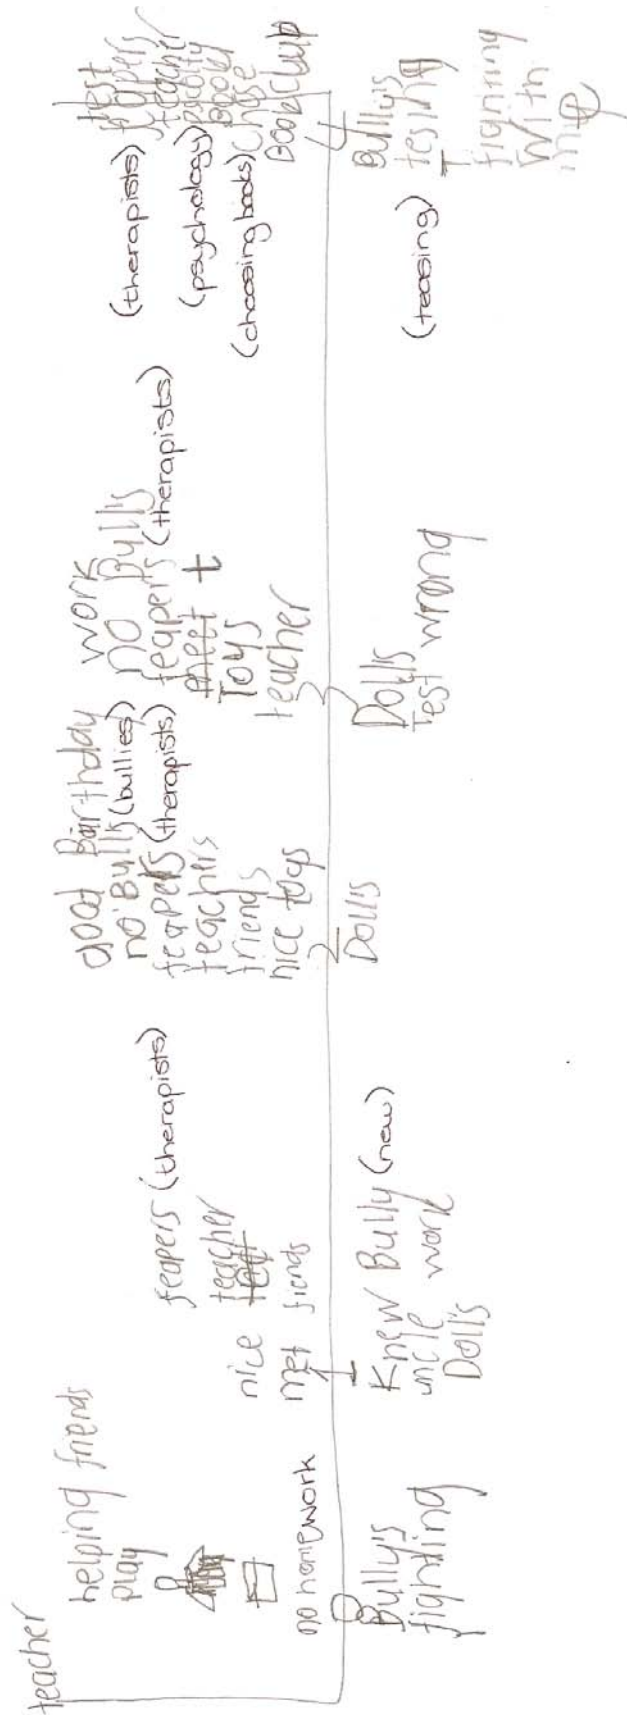 teacher
helping friends
play
no homework
0
Bully's
fighting
feapers (therapists)
teacher
nice
met fiends
1
Knew Bully (new)
uncle work
Dolls
good Birthday
no Bullis (bullies)
feapers (therapists)
teachers
friends
nice toys
2
Dolls
work
no Bullis
feapers (therapists)
Toys
teacher
3
Dolls
test wrong
test
(therapists)
teacher
(psychology)
Book
(choosing books) chose
Book Club
4
Bullys
tesing (teasing)
fighting
with
me